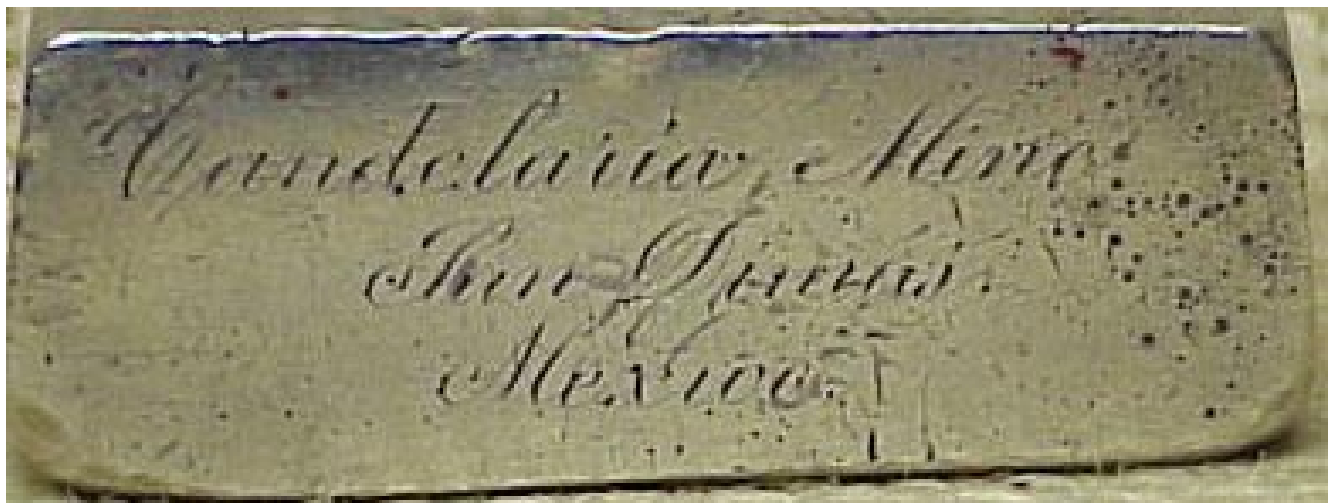 Candelaria Mine
San Dimas.
Mexico.